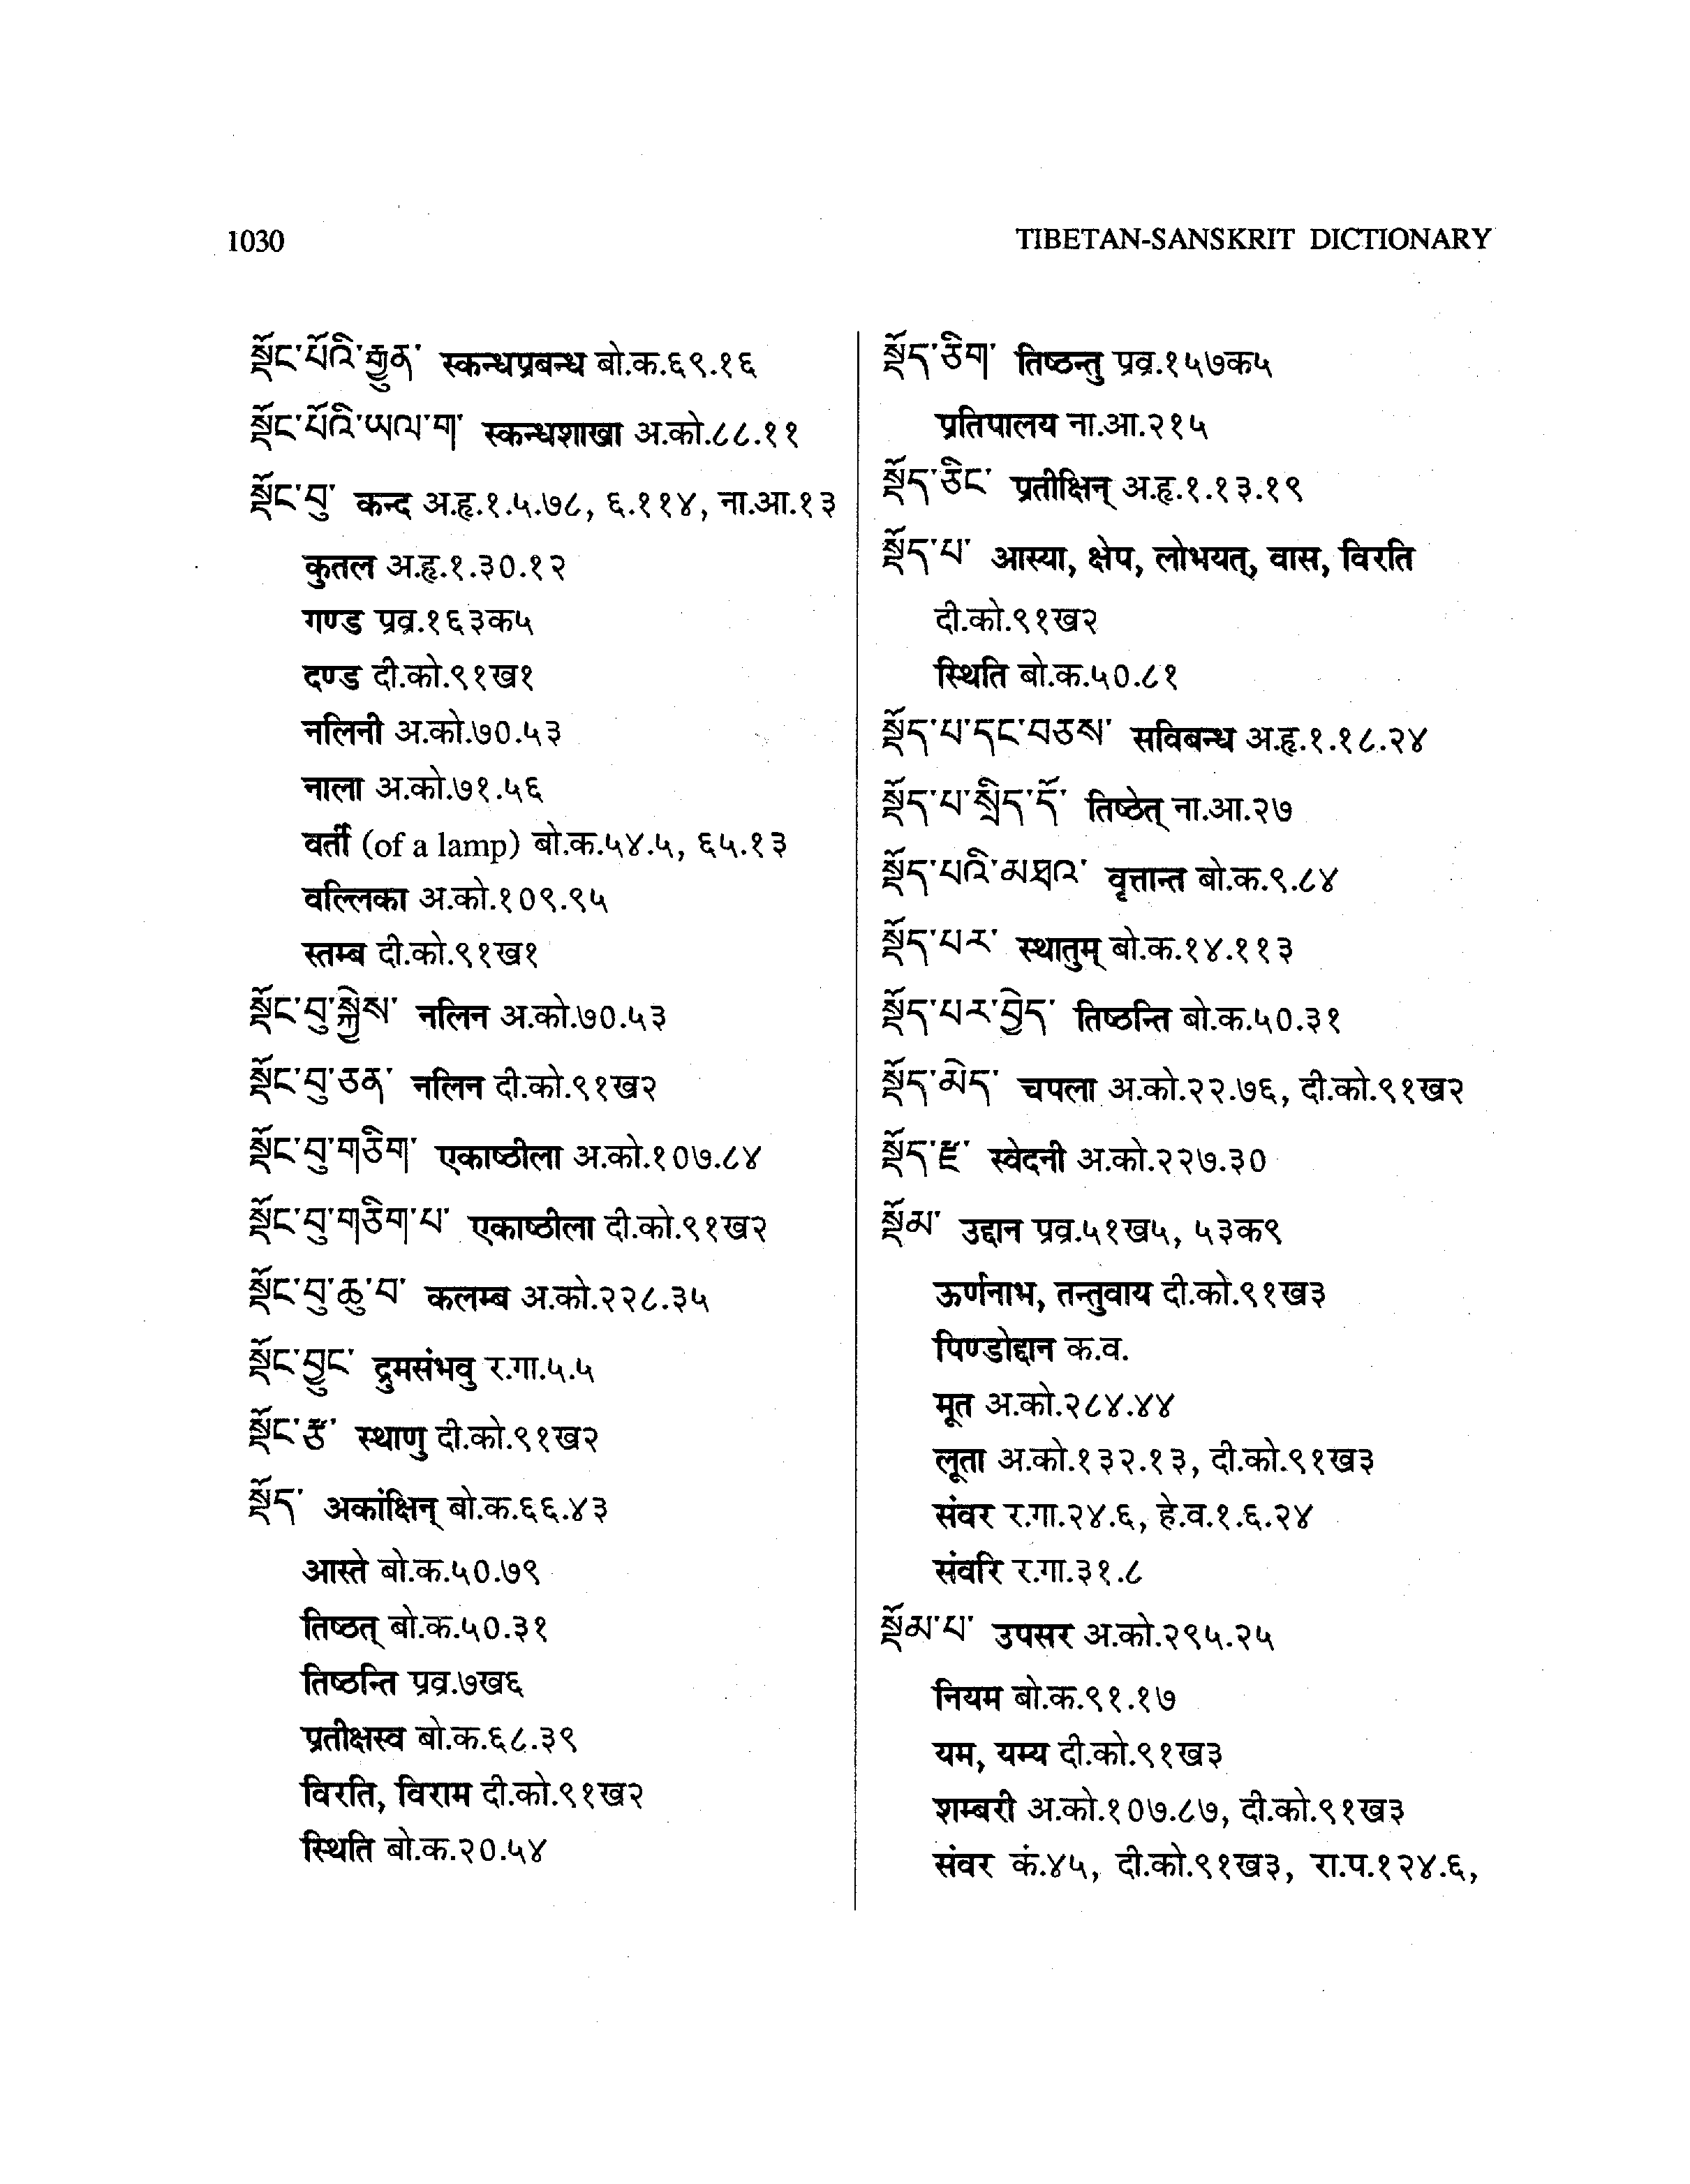 1030
TIBETAN-SANSKRIT DICTIONARY
སྡོང་པོའི་རྒྱུན་ स्कन्धप्रबन्ध बो.क.६९.१६
སྡོང་པོའི་ཡལ་ག་ स्कन्धशाखा अ.को.८८.११
སྡོང་བུ་ कन्द अ.हृ.१.५.७८, ६.११४, ना.आ.१३
कुतल अ.हृ.१.३०.१२
गण्ड प्रव्र.१६३क५
दण्ड दी.को.९१ख१
नलिनी अ.को.७०.५३
नाला अ.को.७१.५६
वर्ती (of a lamp) बो.क.५४.५, ६५.१३
वल्लिका अ.को.१०९.९५
स्तम्ब दी.को.९१ख१
སྡོང་བུ་སྐྱེས་ नलिन अ.को.७०.५३
སྡོང་བུ་ཅན་ नलिन दी.को.९१ख२
སྡོང་བུ་གཅིག་ एकाष्ठीला अ.को.१०७.८४
སྡོང་བུ་གཅིག་པ་ एकाष्ठीला दी.को.९१ख२
སྡོང་བུ་ཆུ་བ་ कलम्ब अ.को.२२८.३५
སྡོང་བྱུང་ द्रुमसंभवु र.गा.५.५
སྡོང་རྩ་ स्थाणु दी.को.९१ख२
སྡོད་ अकांक्षिन् बो.क.६६.४३
आस्ते बो.क.५०.७९
तिष्ठत् बो.क.५०.३१
तिष्ठन्ति प्रव्र.७ख६
प्रतीक्षस्व बो.क.६८.३९
विरति, विराम दी.को.९१ख२
स्थिति बो.क.२०.५४
སྡོད་ཅིག་ तिष्ठन्तु प्रव्र.१५७क५
प्रतिपालय ना.आ.२१५
སྡོད་ཅིང་ प्रतीक्षिन् अ.हृ.१.१३.१९
སྡོད་པ་ आस्या, क्षेप, लोभयत्, वास, विरति
दी.को.९१ख२
स्थिति बो.क.५०.८१
སྡོད་པ་དང་བཅས་ सविबन्ध अ.हृ.१.१८.२४
སྡོད་པ་སྲིད་དོ་ तिष्ठेत् ना.आ.२७
སྡོད་པའི་མཐའ་ वृत्तान्त बो.क.९.८४
སྡོད་པར་ स्थातुम् बो.क.१४.११३
སྡོད་པར་བྱེད་ तिष्ठन्ति बो.क.५०.३१
སྡོད་མེད་ चपला अ.को.२२.७६, दी.को.९१ख२
སྡོད་རྫ་ स्वेदनी अ.को.२२७.३०
སྡོམ་ उद्दान प्रव्र.५१ख५, ५३क९
ऊर्णनाभ, तन्तुवाय दी.को.९१ख३
पिण्डोद्दान क.व.
मूत अ.को.२८४.४४
लूता अ.को.१३२.१३, दी.को.९१ख३
संवर र.गा.२४.६, हे.व.१.६.२४
संवरि र.गा.३१.८
སྡོམ་པ་ उपसर अ.को.२९५.२५
नियम बो.क.९१.१७
यम, यम्य दी.को.९१ख३
शम्बरी अ.को.१०७.८७, दी.को.९१ख३
संवर कं.४५, दी.को.९१ख३, रा.प.१२४.६,